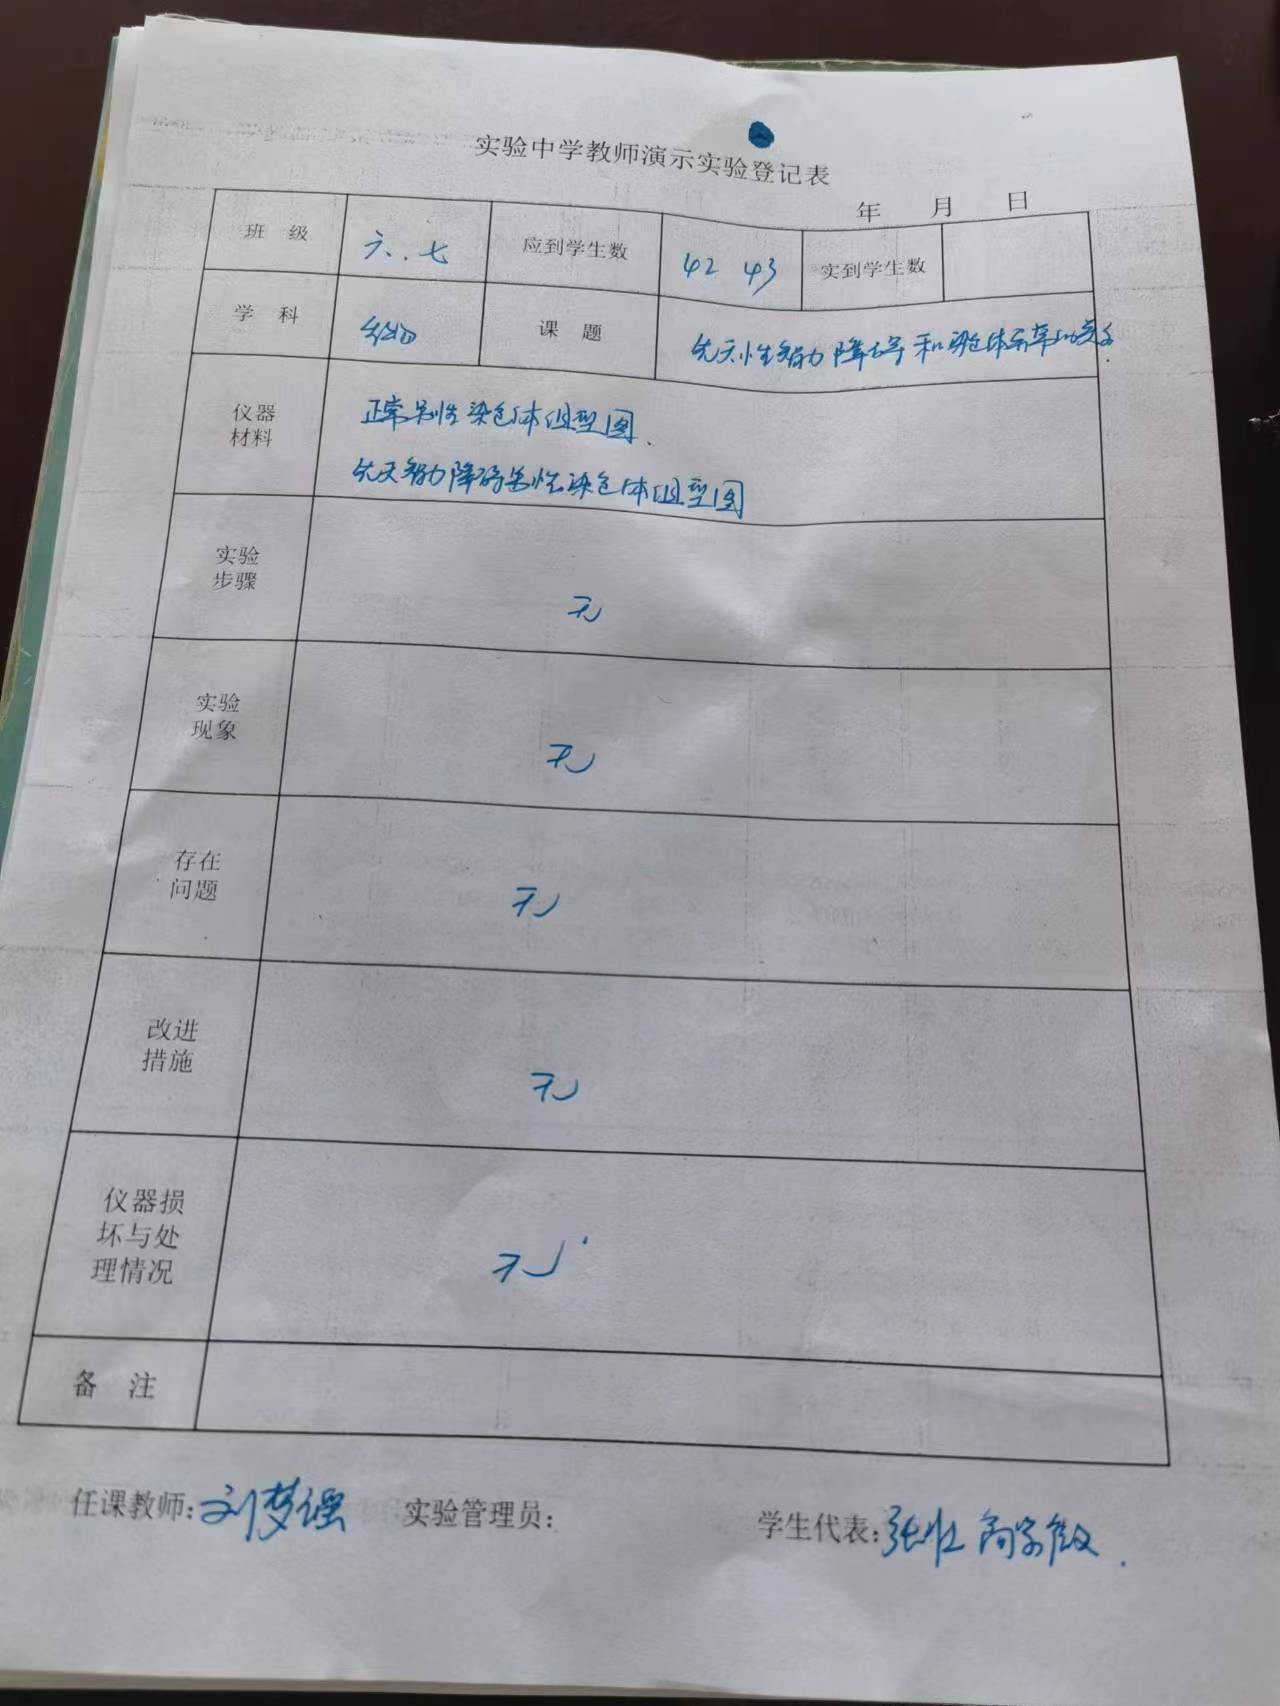 实验中学教师演示实验登记表
年 月 日
班 级 六.七 应到学生数 42 43 实到学生数
学 科 生物 课 题 先天性智力障碍和染色体异常的关系
仪器材料 正常男性染色体组型图、
先天智力障碍男性染色体组型图
实验步骤 无
实验现象 无
存在问题 无
改进措施 无
仪器损坏与处理情况 无
备 注
任课教师: 刘梦瑶 实验管理员: 学生代表: 张壮